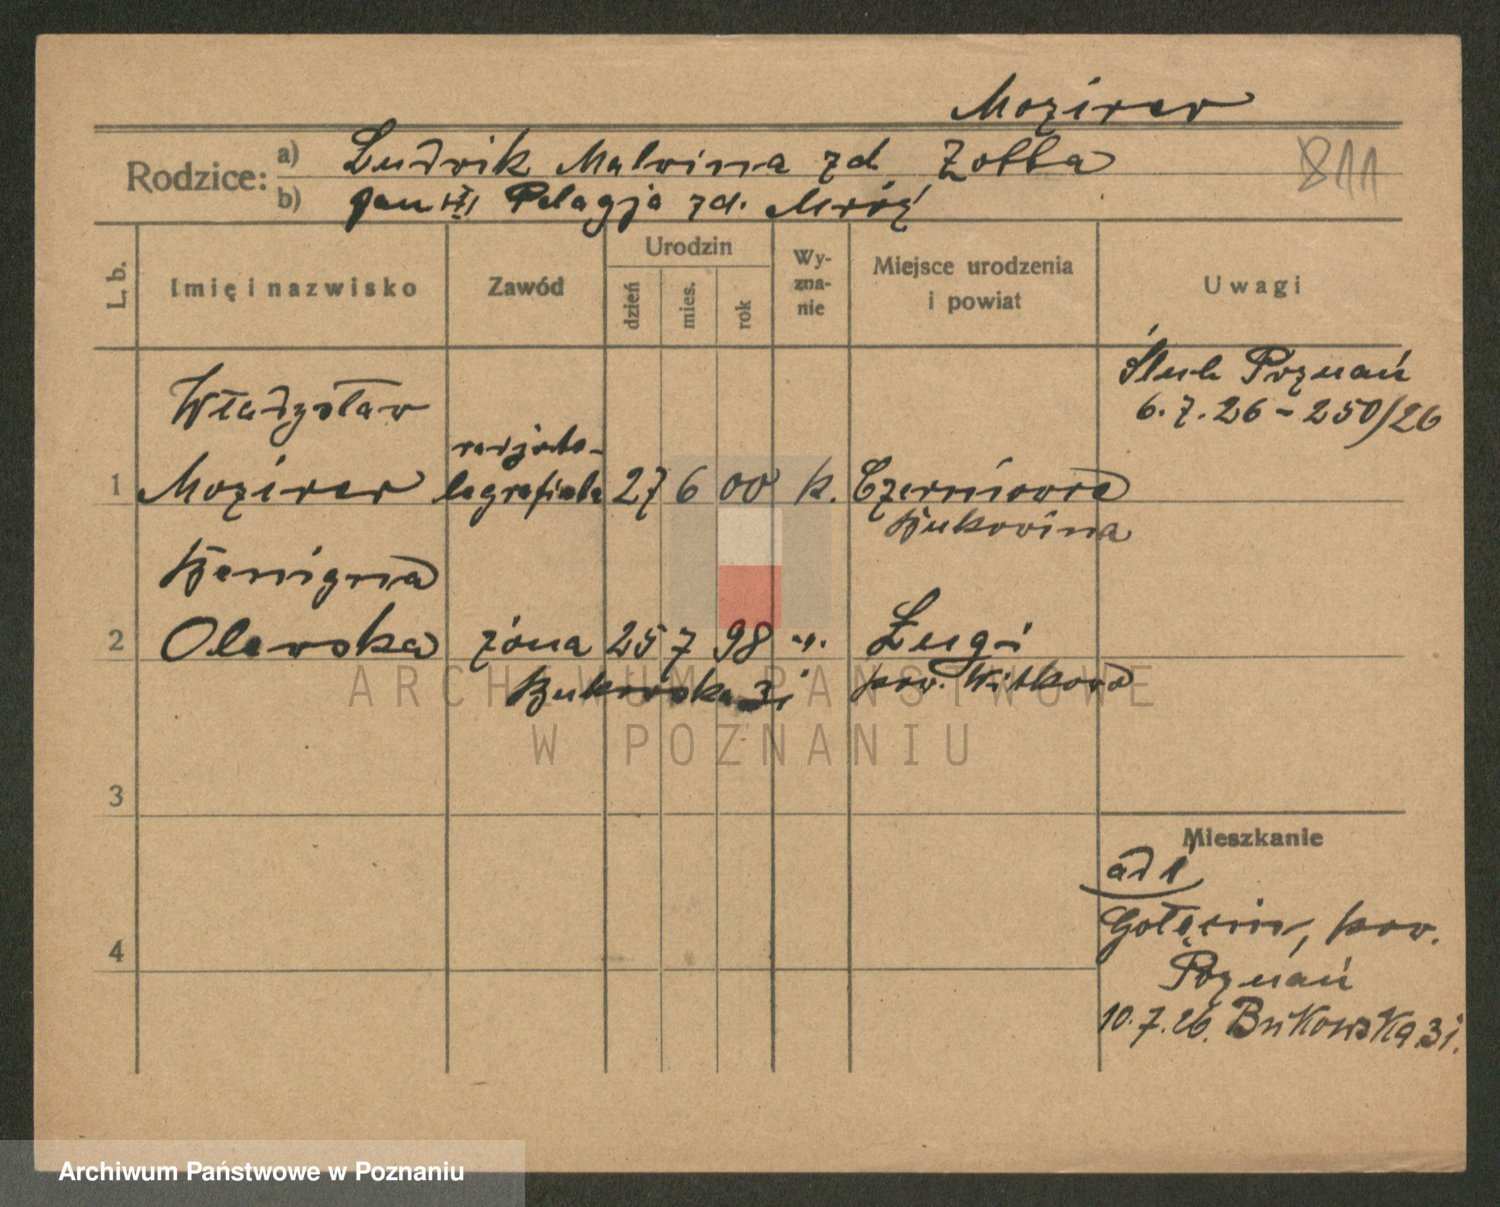 Mozirer
Rodzice: a) Ludwik Malwina zd Zobba
b) Jan III Pelagja zd. Mróz
811
L. b. Imię i nazwisko Zawód Urodzin dzień mies. rok Wyznanie Miejsce urodzenia i powiat Uwagi
Ślub Poznań
6.7.26 - 250/26
Władysław
radjote-
1 Mozirer legrafista 27 6 00 k. Czerniowce
Bukowina
Benigna
2 Olewska żona 25 7 98 "
Bukowska 31 pow. Witkowo
3
Mieszkanie
ad 1
4 Gołęcin, pow.
Poznań
10.7.26. Bukowska 31.
ARCHIWUM PAŃSTWOWE
W POZNANIU
Archiwum Państwowe w Poznaniu